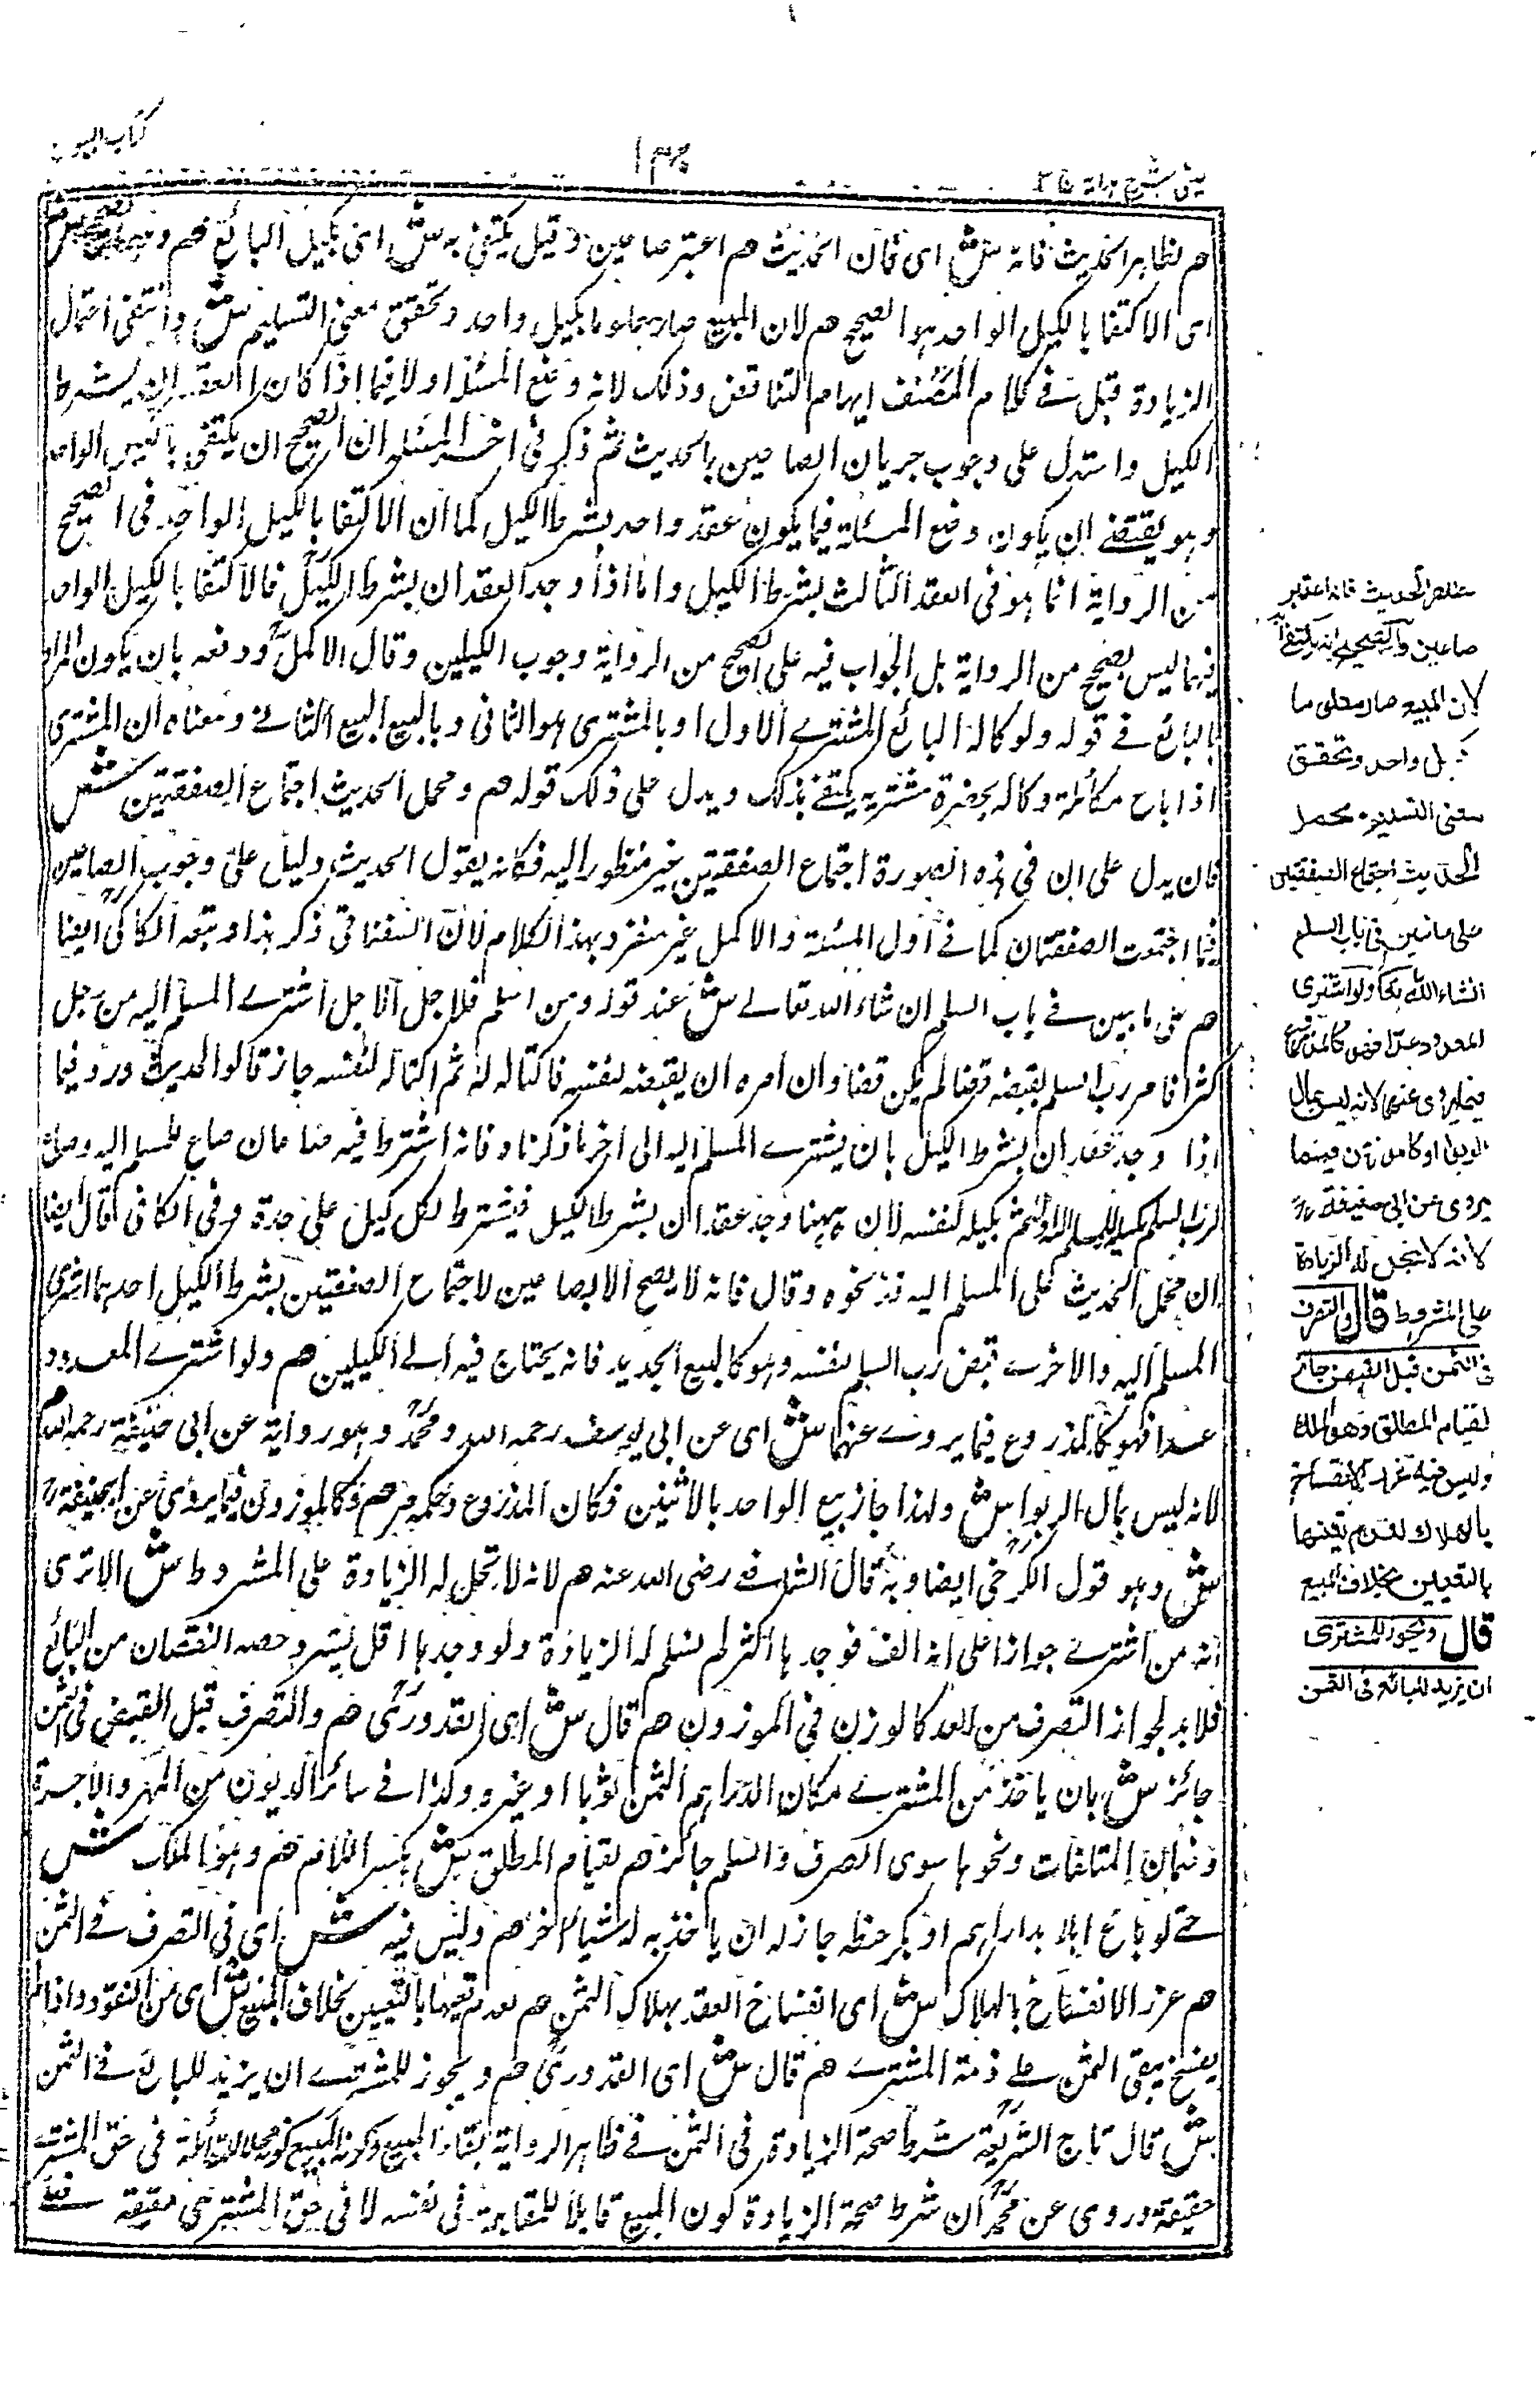 كتاب البيوع
هم لظاهر الحديث فانه ش اى فان الحديث هم اعتبر صاعين وقيل يكتفى به ش اى بكيل البائع هم
اى الاكتفا بالكيل الواحد هو الصحيح هم لان المبيع صار معلوما بكيل واحد وتحقق معنى التسليم ش وانتفى احتمال
الزيادة قيل فى كلام المصنف ايهام التناقض وذلك لانه وضع المسئلة اولا فيما اذا كان العقد ان بشرط
الكيل واستدل على وجوب جريان الصاعين بالحديث ثم ذكر فى اخر المسئلة ان الصحيح ان يكتفى بالكيل الواحد
وهو يقتضى ان يكون وضع المسئلة فيما يكون عقد واحد بشرط الكيل كما ان الاكتفا بالكيل الواحد فى الصحيح
من الرواية انما هو فى العقد الثالث بشرط الكيل واما اذا وجد العقدان بشرط الكيل فالاكتفا بالكيل الواحد
فيهما ليس بصحيح من الرواية بل الجواب فيه على الصحيح من الرواية وجوب الكيلين وقال الاكمل ودفعه بان يكون المراد
بالبائع فى قوله ولو كاله البائع المشترى الاول او بالمشترى هو الثانى وبالبيع البيع الثانى ومعناه ان المشترى
اذا باع مكائلة وكاله بحضرة مشتريه يكتفى بذلك ويدل على ذلك قوله هم ومحمل الحديث اجتماع الصفقتين ش
فان يدل على ان فى هذه الصورة اجتماع الصفقتين غير منظور اليه فكانه يقول الحديث دليل على وجوب الصاعين
فيما اجتمعت الصفقتان كما فى اول المسئلة والاكمل غير منفرد بهذا الكلام لان السغناقى ذكر هذا وتبعه الكاكى ايضا
هم على ما بين فى باب السلم ان شاء الله تعالى ش عند قوله ومن اسلم فلاجل الاجل اشترى المسلم اليه من رجل
كرا فامر رب السلم بقبضه قضا لم يكن قضا وان امره ان يقبضه لنفسه فاكتاله له ثم اكتاله لنفسه جاز قالوا الحديث ورد فيما
اذا وجد عقدان بشرط الكيل بان يشترى المسلم اليه الى اخر ما ذكرنا وفانه اشترط فيه صاعان صاع للمسلم اليه وصاع
لرب السلم ثم بكيله لنفسه لان ههنا وجد عقدان بشرط الكيل فيشترط لكل كيل على حدة وفى الكافى قال ايضا
ان محمل الحديث على المسلم اليه فذ نحوه وقال فانه لا يصح الا بصاعين لاجتماع الصفقتين بشرط الكيل احدهما اشترى
المسلم اليه والاخرى قبض رب السلم لنفسه وهو كالبيع الجديد فانه يحتاج فيه الى الكيلين هم ولو اشترى المعدود
عدا فهو كالمذروع فيما يروى عنهما ش اى عن ابى يوسف رحمه الله ومحمد وهو رواية عن ابى حنيفة رحمه الله هم
لانه ليس بمال الربوا ش ولهذا جاز بيع الواحد بالاثنين فكان المذروع وحكمه مر هم وكالموزون فيما يروى عن ابى حنيفة
ش وهو قول الكرخى ايضا وبه قال الشافعى رضى الله عنه هم لانه لا تحل له الزيادة على المشروط ش الا ترى
انه من اشترى جوازا على انه الف فوجدها اكثر لم تسلم له الزيادة ولو وجدها اقل يسترد حصة النقصان من البائع
فلا بد لجواز التصرف من العد كالوزن فى الموزون هم قال ش اى القدورى هم والتصرف قبل القبض فى الثمن
جائز ش بان ياخذ من المشترى مكان الدراهم الثمن ثوبا او غيره وكذا فى سائر الديون من المهر والاجرة
وضمان المتلفات ونحوها سوى الصرف والسلم جائز هم لقيام المطلق ش بكسر اللام هم وهو الملك ش
حتى لو باع ابلا بدراهم او بكر حنطة جاز له ان ياخذ به له شيا اخر هم وليس فيه ش اى فى التصرف فى الثمن
هم غرر الانفساخ بالهلاك ش اى انفساخ العقد بهلاك الثمن هم لعدم تعينها بالتعيين بخلاف المبيع ش اى من النقود واذا لم
يفسخ يبقى الثمن على ذمة المشترى هم قال ش اى القدورى هم ويجوز للمشترى ان يزيد للبائع فى الثمن
ش قال تاج الشريعة شرط صحة الزيادة فى الثمن فى ظاهر الرواية بقاء المبيع وكون المبيع محلا للمقابلة فى حق المشترى
حقيقة وروى عن محمد ان شرط صحة الزيادة كون المبيع قابلا للمقابلة فى نفسه لا فى حق المشترى حقيقة فعلى
فانه اعتبر
صاعين والصحيح انه يكتفى به
لان المبيع صار معلوما
بكيل واحد وتحقق
معنى التسليم ومحمل
الحديث اجتماع الصفقتين
على ما نبين فى باب السلم
انشاء الله تعالى ولو اشترى
المعدود عدا فهو كالمذروع
فيما يروى عنهما لانه ليس بمال
الربوا وكالموزون فيما
يروى عن ابى حنيفة رح
لانه لا تحل له الزيادة
على المشروط قال والتصرف
فى الثمن قبل القبض جائز
لقيام المطلق وهو الملك
وليس فيه غرر الانفساخ
بالهلاك لعدم تعينها
بالتعيين بخلاف المبيع
قال ويجوز للمشترى
ان يزيد للبائع فى الثمن